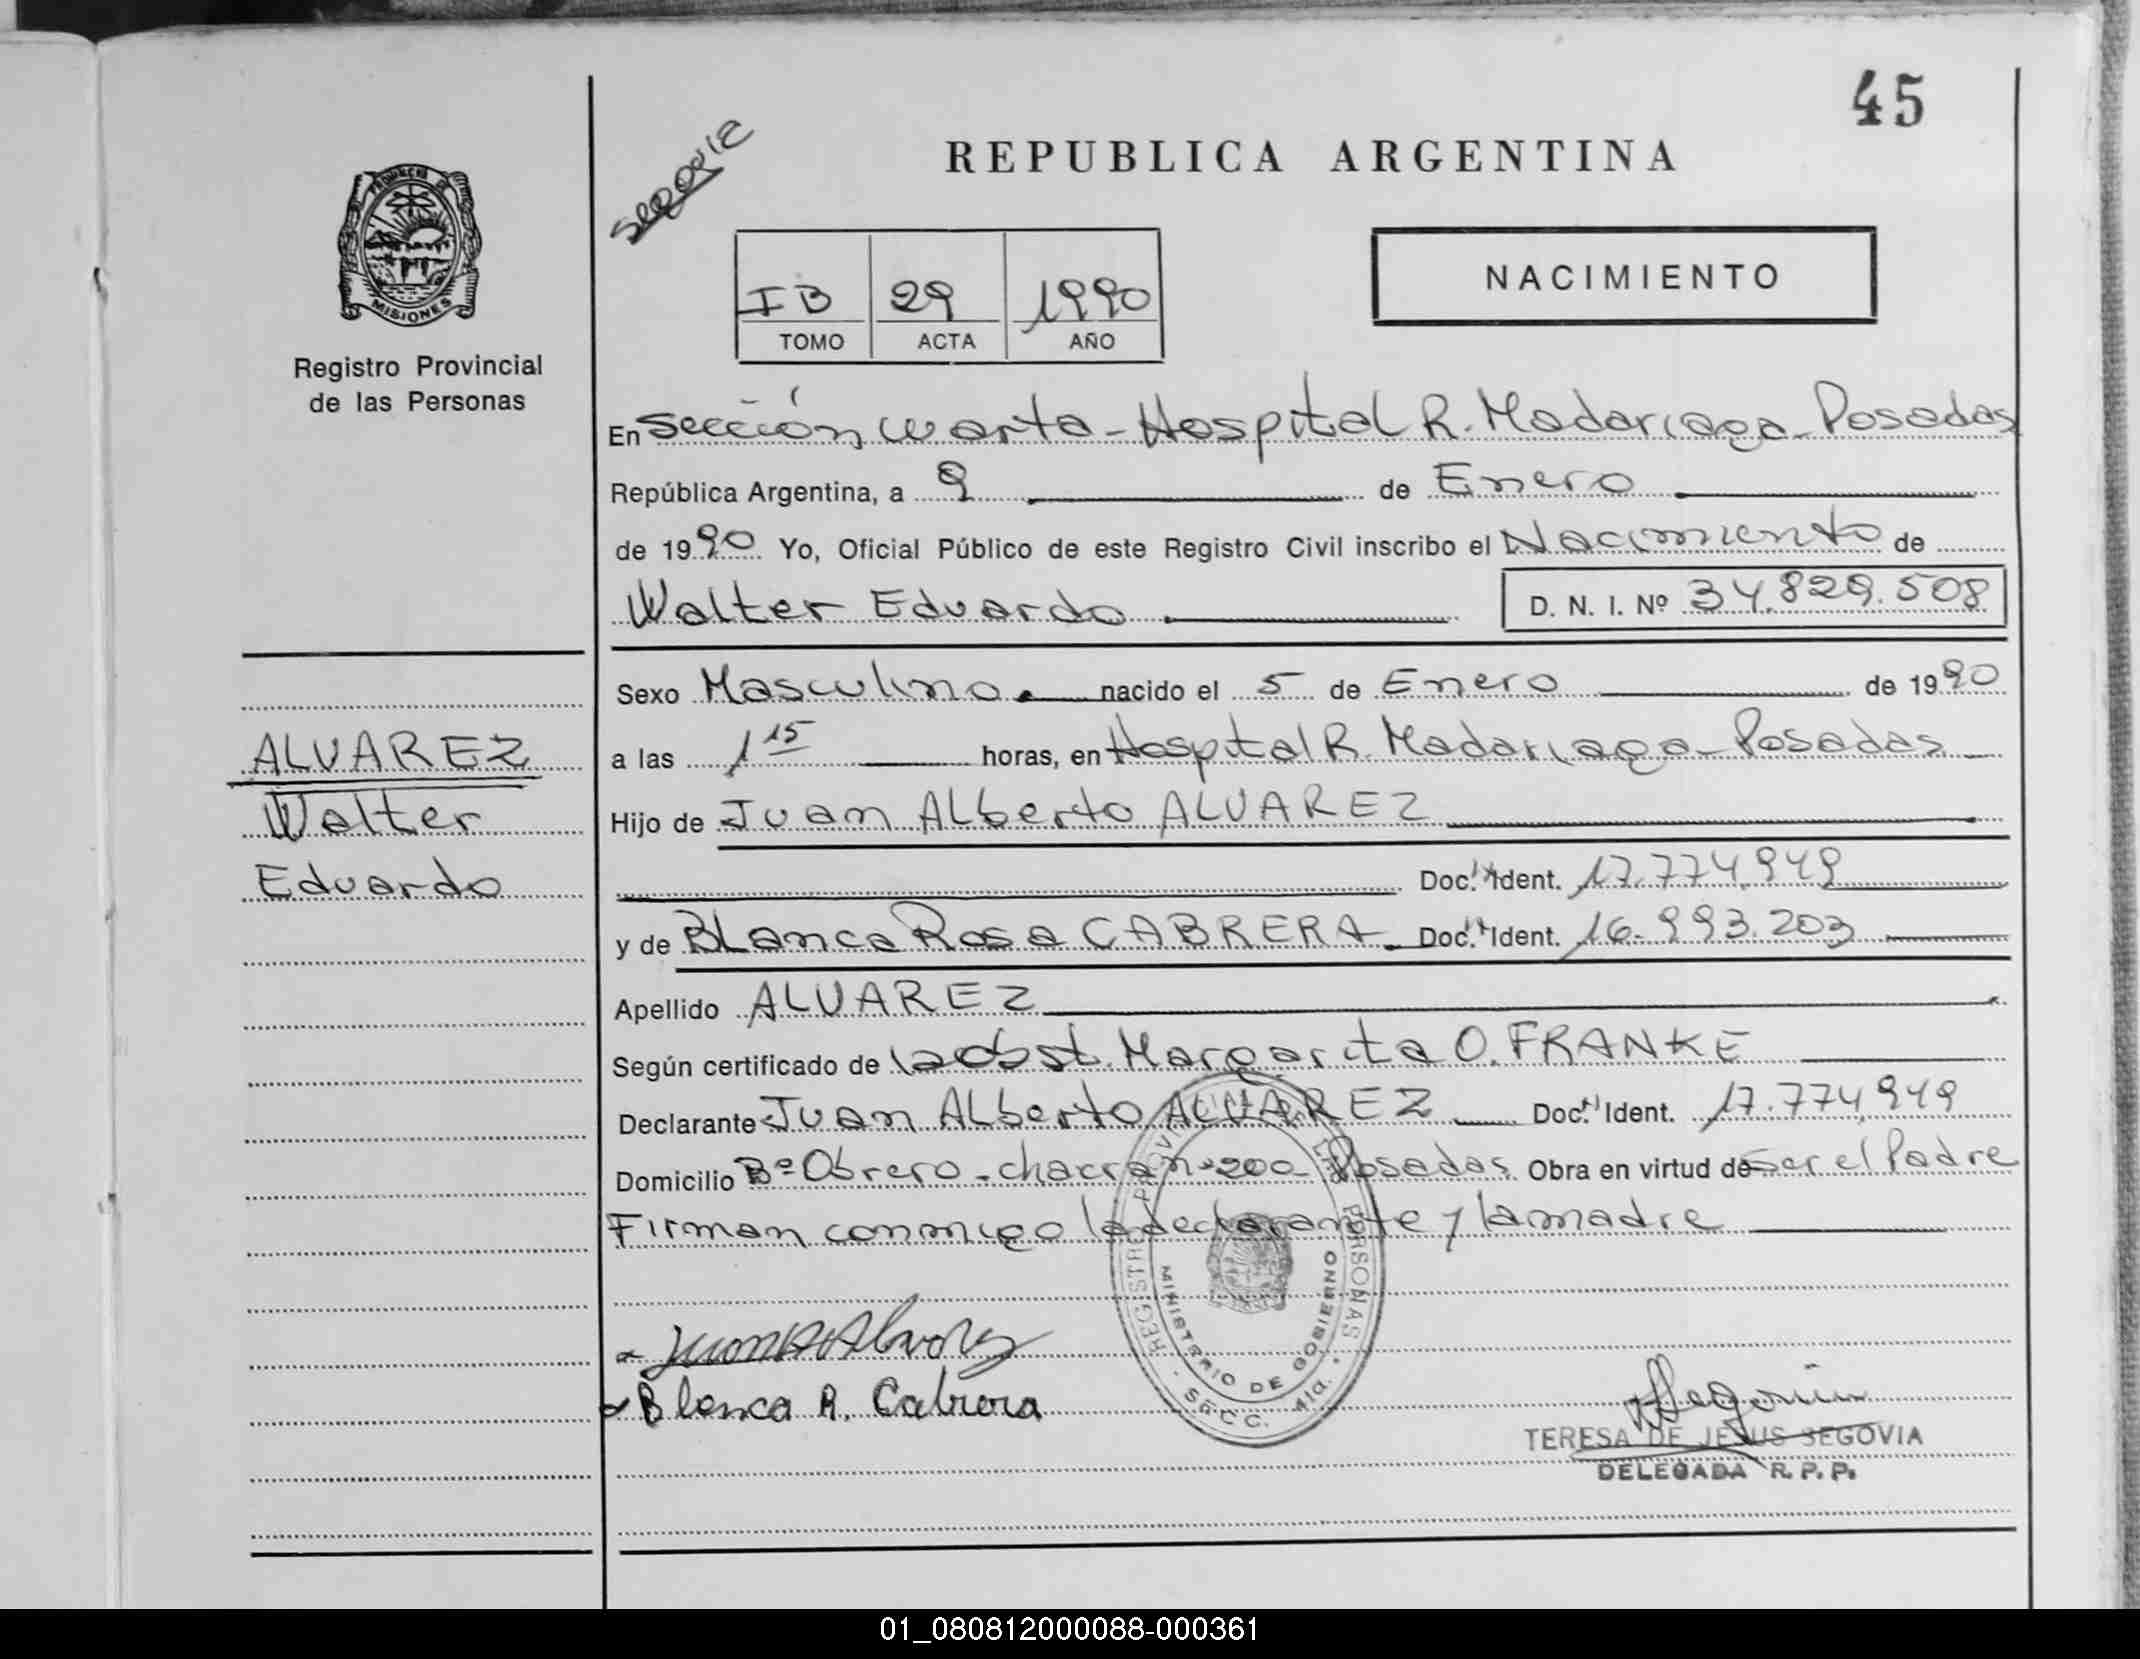 45
REPUBLICA ARGENTINA
PROVINCIA DE
MISIONES
Registro Provincial
de las Personas
NACIMIENTO
IB 29 1990
TOMO ACTA AÑO
En Sección cuarta - Hospital R. Madariaga - Posadas
República Argentina, a 9 de Enero
de 1990 Yo, Oficial Público de este Registro Civil inscribo el Nacimiento de
Walter Eduardo D. N. I. Nº 34.829.508
Sexo Masculino. nacido el 5 de Enero de 1990
a las 1 15 horas, en Hospital R. Madariaga - Posadas
Hijo de Juan Alberto ALVAREZ
Doc. Ident. 17.774.949
y de Blanca Rosa CABRERA Doc. Ident. 16.993.203
Apellido ALVAREZ
Según certificado de la obst. Margarita O. FRANKE
Declarante Juan Alberto ALVAREZ Doc. Ident. 17.774.949
Domicilio Bº Obrero - chacra nº 200 - Posadas Obra en virtud de ser el Padre
Firman conmigo la declarante y la madre
ALVAREZ
Walter
Eduardo
Juan A Alvarez
Blanca R. Cabrera
MINISTERIO DE GOBIERNO
SECC. 4ta.
Segovia
TERESA DE JESUS SEGOVIA
DELEGADA R. P. P.
01_080812000088-000361